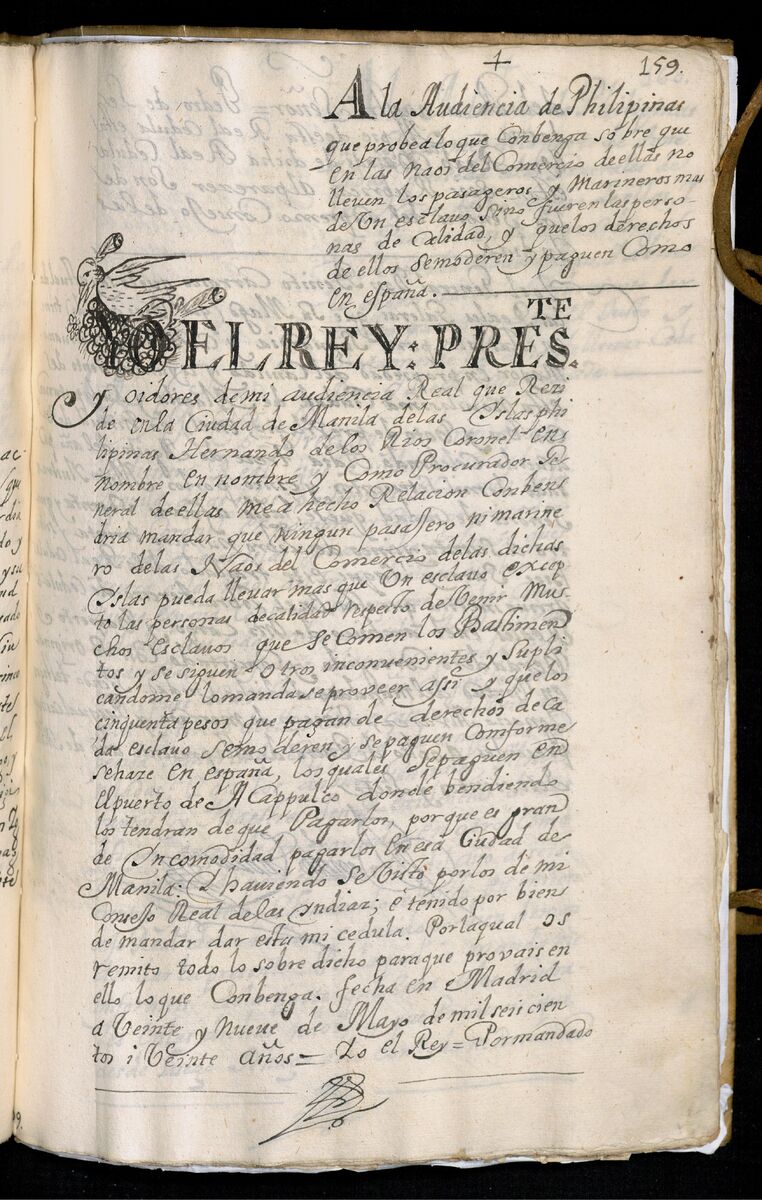 +
159.
A la Audiencia de Philipinas
que probea lo que Conbenga sobre que
en las Naos del Comercio de ellas no
lleven los pasageros y Marineros mas
de Un esclavo Sino fueren las perso-
nas de Calidad, y que los derechos
de ellos se moderen y paguen Como
en españa.
YO EL REY: PRES.TE
y oidores de mi audiencia Real que Resi
de en la Ciudad de Manila de las Islas phi
lipinas Hernando de los Rios Coronel en
nombre en nombre y Como Procurador Ge
neral de ellas me a hecho Relacion Conben
dria mandar que ningun pasajero ni marine
ro de las Naos del Comercio de las dichas
Islas pueda llevar mas que Un esclavo excep
to las personas de calidad respecto de Venir Mu
chos esclavos que se comen los Bastimen
tos y se siguen otros inconvenientes y Supli
candome lo mandase proveer assi y que los
cinquenta pesos que pagan de derechos de ca
da esclavo se mo deren y se paguen Conforme
se haze en españa, los quales se paguen en
El puerto de ACappulco donde bendiendo
los tendran de que Pagarlos, porque es gran
de Incomodidad pagarlos en esa Ciudad de
Manila: I haviendo se Visto por los de mi
Consejo Real de las Yndiaz; é tenido por bien
de mandar dar esta mi cedula. Por la qual os
remito todo lo sobre dicho para que provais en
ello lo que Conbenga. fecha en Madrid
a Veinte y Nueve de Mayo de mil seis cien
tos i Veinte años = Yo el Rey = Por mandado